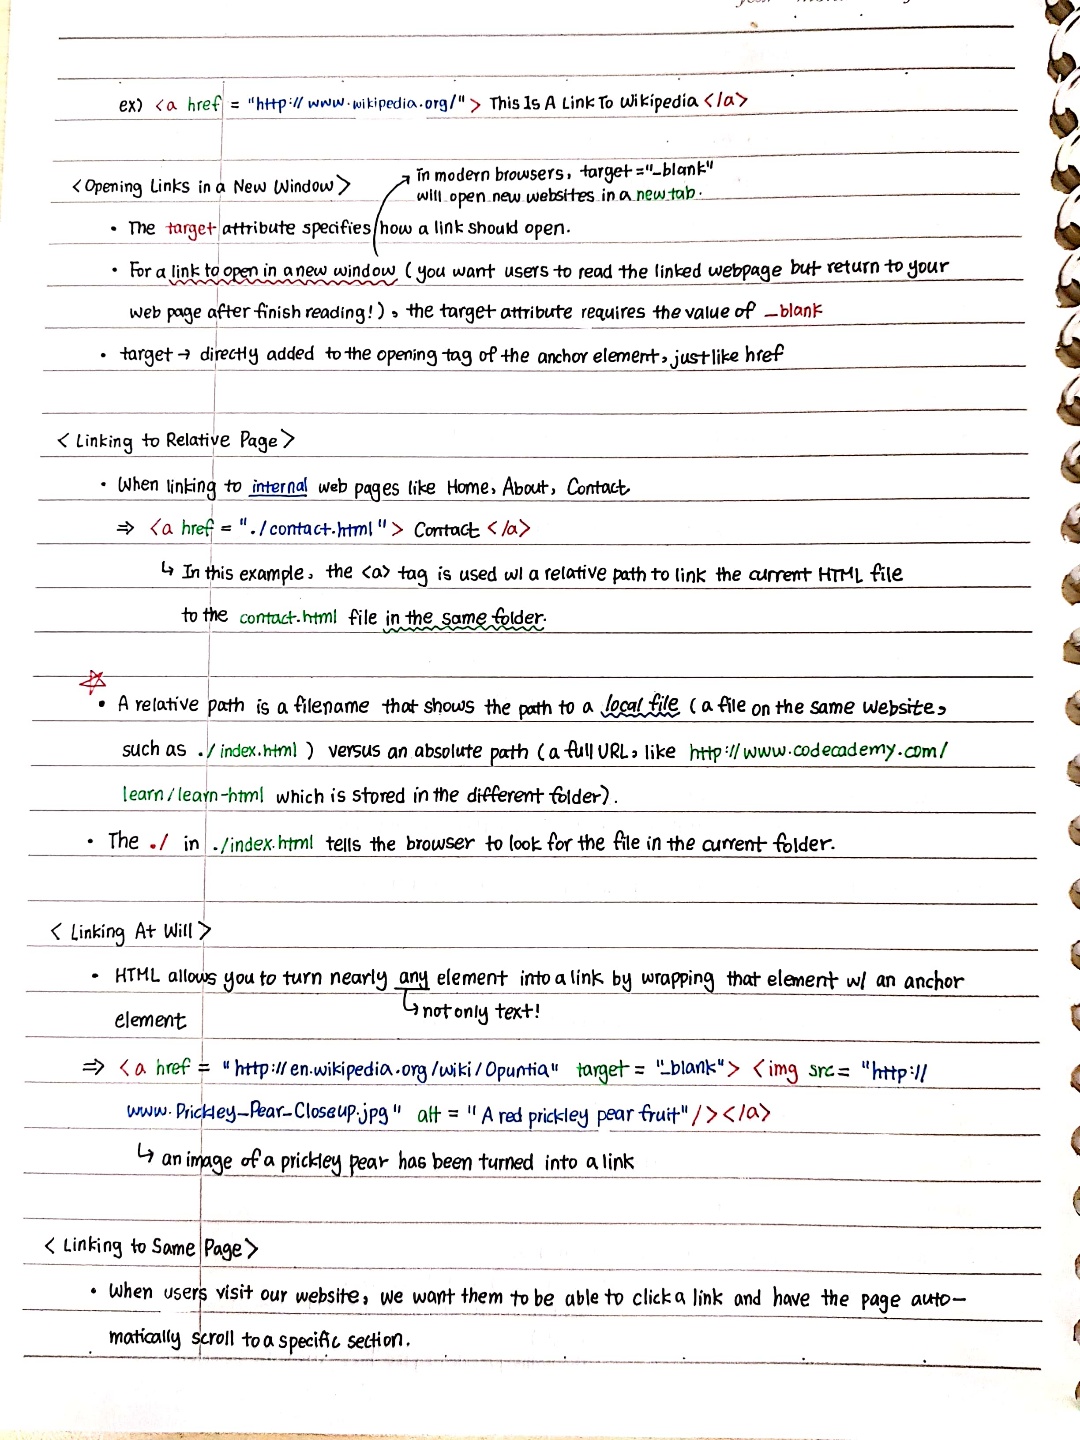 ex) <a href = "http://www.wikipedia.org/"> This Is A Link To Wikipedia </a>
<Opening Links in a New Window>
in modern browsers, target="_blank"
will open new websites in a new tab.
• The target attribute specifies how a link should open.
• For a link to open in a new window (you want users to read the linked webpage but return to your
web page after finish reading!), the target attribute requires the value of _blank
• target → directly added to the opening tag of the anchor element, just like href
<Linking to Relative Page>
• When linking to internal web pages like Home, About, Contact
⇒ <a href = "./contact.html"> Contact </a>
↳ In this example, the <a> tag is used w/ a relative path to link the current HTML file
to the contact.html file in the same folder.
☆
• A relative path is a filename that shows the path to a local file (a file on the same website,
such as ./index.html) versus an absolute path (a full URL, like http://www.codecademy.com/
learn/learn-html which is stored in the different folder).
• The ./ in ./index.html tells the browser to look for the file in the current folder.
<Linking At Will>
• HTML allows you to turn nearly any element into a link by wrapping that element w/ an anchor
↳ not only text!
element
⇒ <a href = "http://en.wikipedia.org/wiki/Opuntia" target = "_blank"> <img src = "http://
www.Prickley_Pear_Closeup.jpg" alt = "A red prickley pear fruit"/></a>
↳ an image of a prickley pear has been turned into a link
<Linking to Same Page>
• When users visit our website, we want them to be able to click a link and have the page auto-
matically scroll to a specific section.